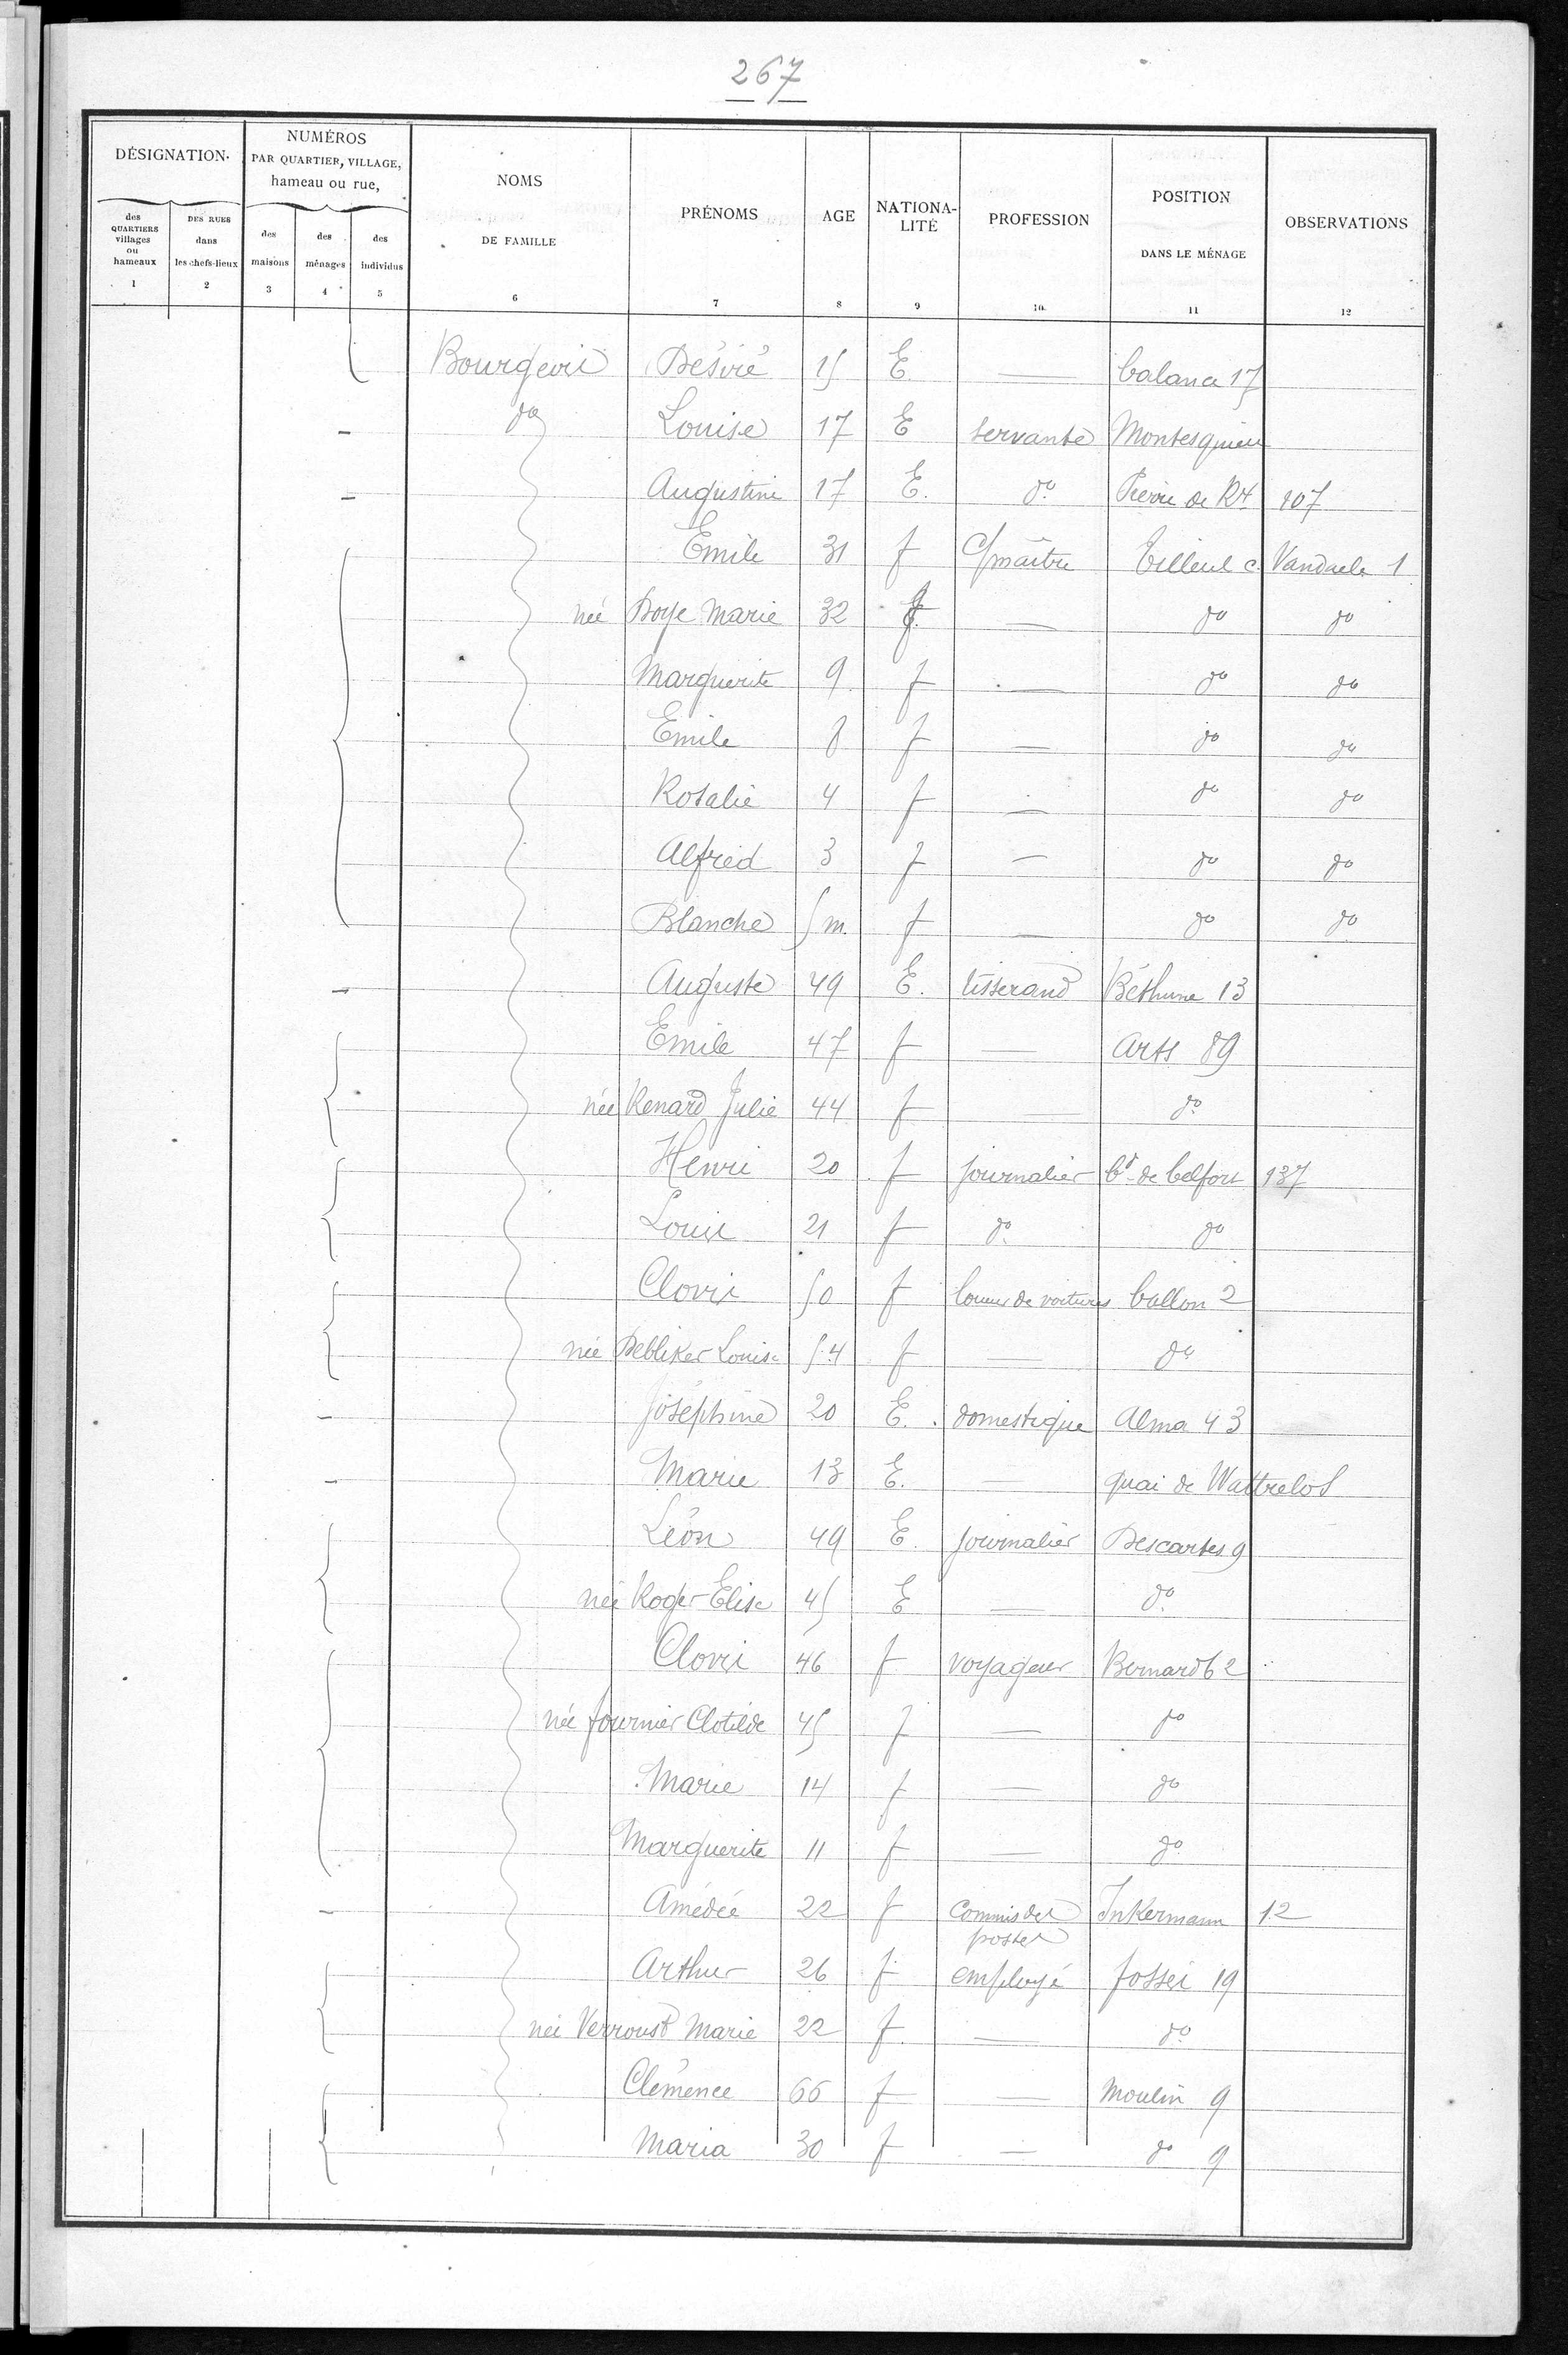 267
DÉSIGNATION.
NUMÉROS
PAR QUARTIER, VILLAGE,
hameau ou rue,
NOMS
DE FAMILLE
PRÉNOMS
AGE
NATIONA-
LITÉ
PROFESSION
POSITION
DANS LE MÉNAGE
OBSERVATIONS
des
QUARTIERS
villages
ou
hameaux
DES RUES
dans
les chefs-lieux
des
maisons
des
ménages
des
individus
1 2 3 4 5 6 7 8 9 10. 11 12
Bourgeois Désiré 15 E. — balance 17
do Louise 17 E servante Montesquieu
Augustine 17 E. do Pierre de Rx 107
Emile 31 f c/maître Tilleul c. Vandaele 1
née Doye Marie 32 f — do do
Marguerite 9 f — do do
Emile 8 f — do do
Rosalie 4 f — do do
Alfred 3 f — do do
Blanche 5 m. f — do do
Auguste 49 E. tisserand Béthune 13
Emile 47 f — Arts 89
née Renard Julie 44 f — do
Henri 20 f journalier bd de belfort 137
Louis 21 f do do
Clovis 50 f loueur de voitures ballon 2
née Debliker Louise 54 f — do
Joséphine 20 E. domestique Alma 43
Marie 13 E. — quai de Wattrelos
Léon 49 E. journalier Descartes 9
née Roger Elise 45 E — do
Clovis 46 f voyageur Bernard 62
née fournier Clotilde 45 f — do
Marie 14 f — do
Marguerite 11 f — do
Amédée 22 f Commis des Inkermann 12
postes
Arthur 26 f employé fossés 19
née Verroust Marie 22 f. — do
Clémence 66 f — Moulin 9
Maria 30 f — do 9